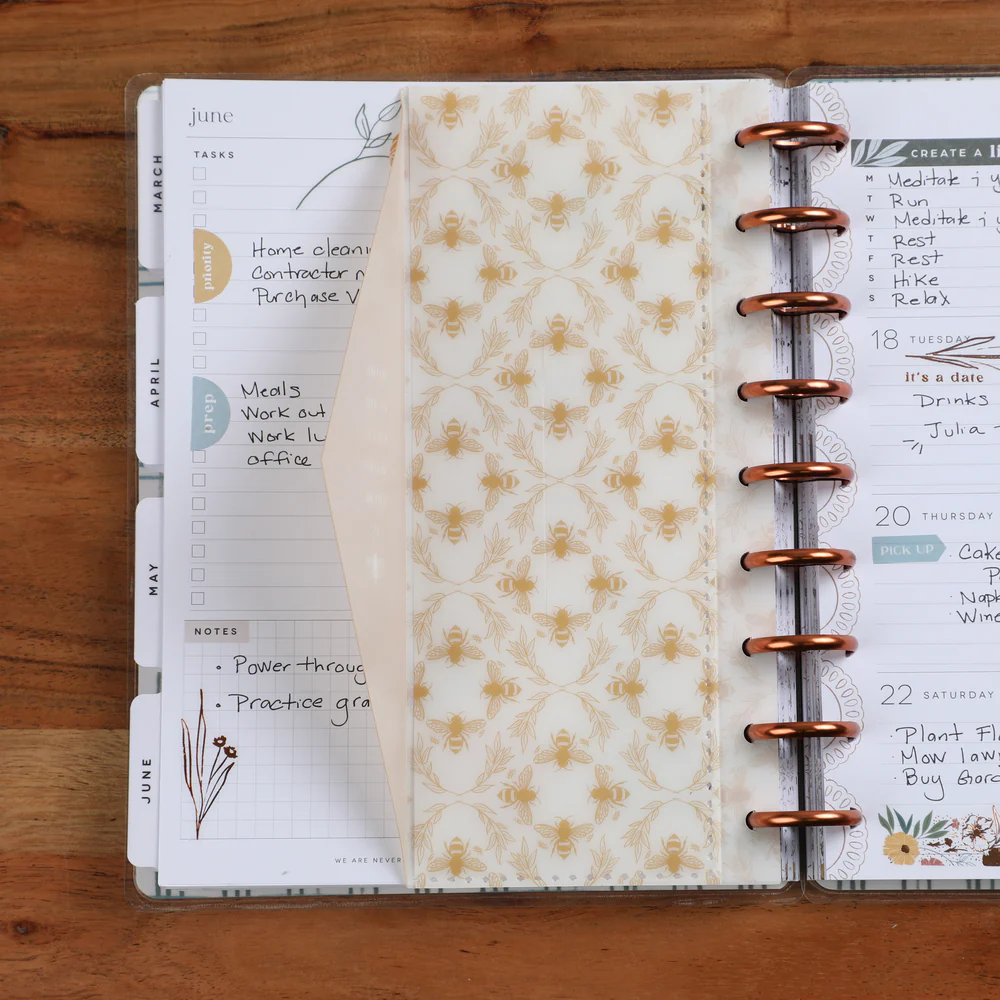 june
TASKS
priority
Home
Contracter
Purchase
prep
Meals
Work out
Work
office
NOTES
• Power
• Practice
WE ARE NEVER
MARCH
APRIL
MAY
JUNE
CREATE A
M Meditate
T Run
W Meditate
T Rest
F Rest
S Hike
S Relax
18 TUESDAY
it's a date
Drinks
Julia
20 THURSDAY
PICK UP
·
· Wine
22 SATURDAY
· Plant
· Mow
· Buy